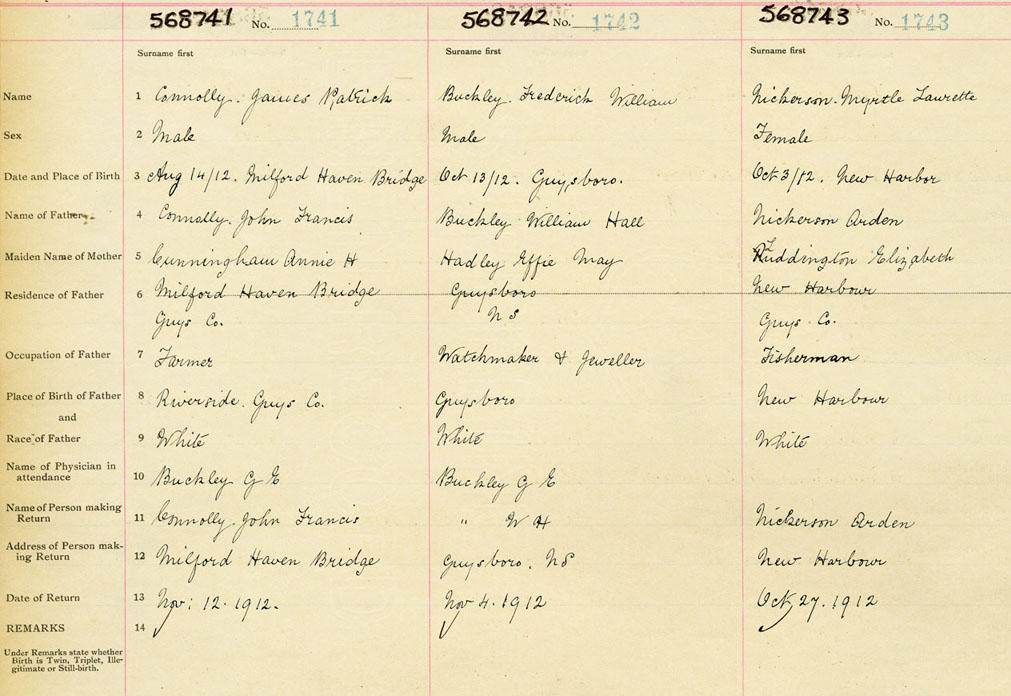 568741 No. 1741 568742 No. 1742 568743 No. 1743
Surname first Surname first Surname first
Name 1 Connolly. James Patrick Buckley. Frederick William Nickerson. Myrtle Laurette
Sex 2 Male Male Female
Date and Place of Birth 3 Aug 14/12. Milford Haven Bridge Oct 13/12. Guysboro. Oct 3/12. New Harbor
Name of Father 4 Connolly. John Francis Buckley William Hall Nickerson Arden
Maiden Name of Mother 5 Cunningham Annie H Hadley Effie May Elizabeth
Residence of Father 6 Milford Haven Bridge Guysboro New Harbour
Guys Co. N S Guys Co.
Occupation of Father 7 Farmer Watchmaker & Jeweller Fisherman
Place of Birth of Father 8 Riverside. Guys Co. Guysboro New Harbour
and
Race of Father 9 White White White
Name of Physician in
attendance 10 Buckley G E Buckley G E
Name of Person making
Return 11 Connolly. John Francis " W H Nickerson Arden
Address of Person mak-
ing Return 12 Milford Haven Bridge Guysboro. NS New Harbour
Date of Return 13 Nov: 12. 1912. Nov 4. 1912 Oct, 27. 1912
REMARKS 14
Under Remarks state whether
Birth is Twin, Triplet, Ille-
gitimate or Still-birth.